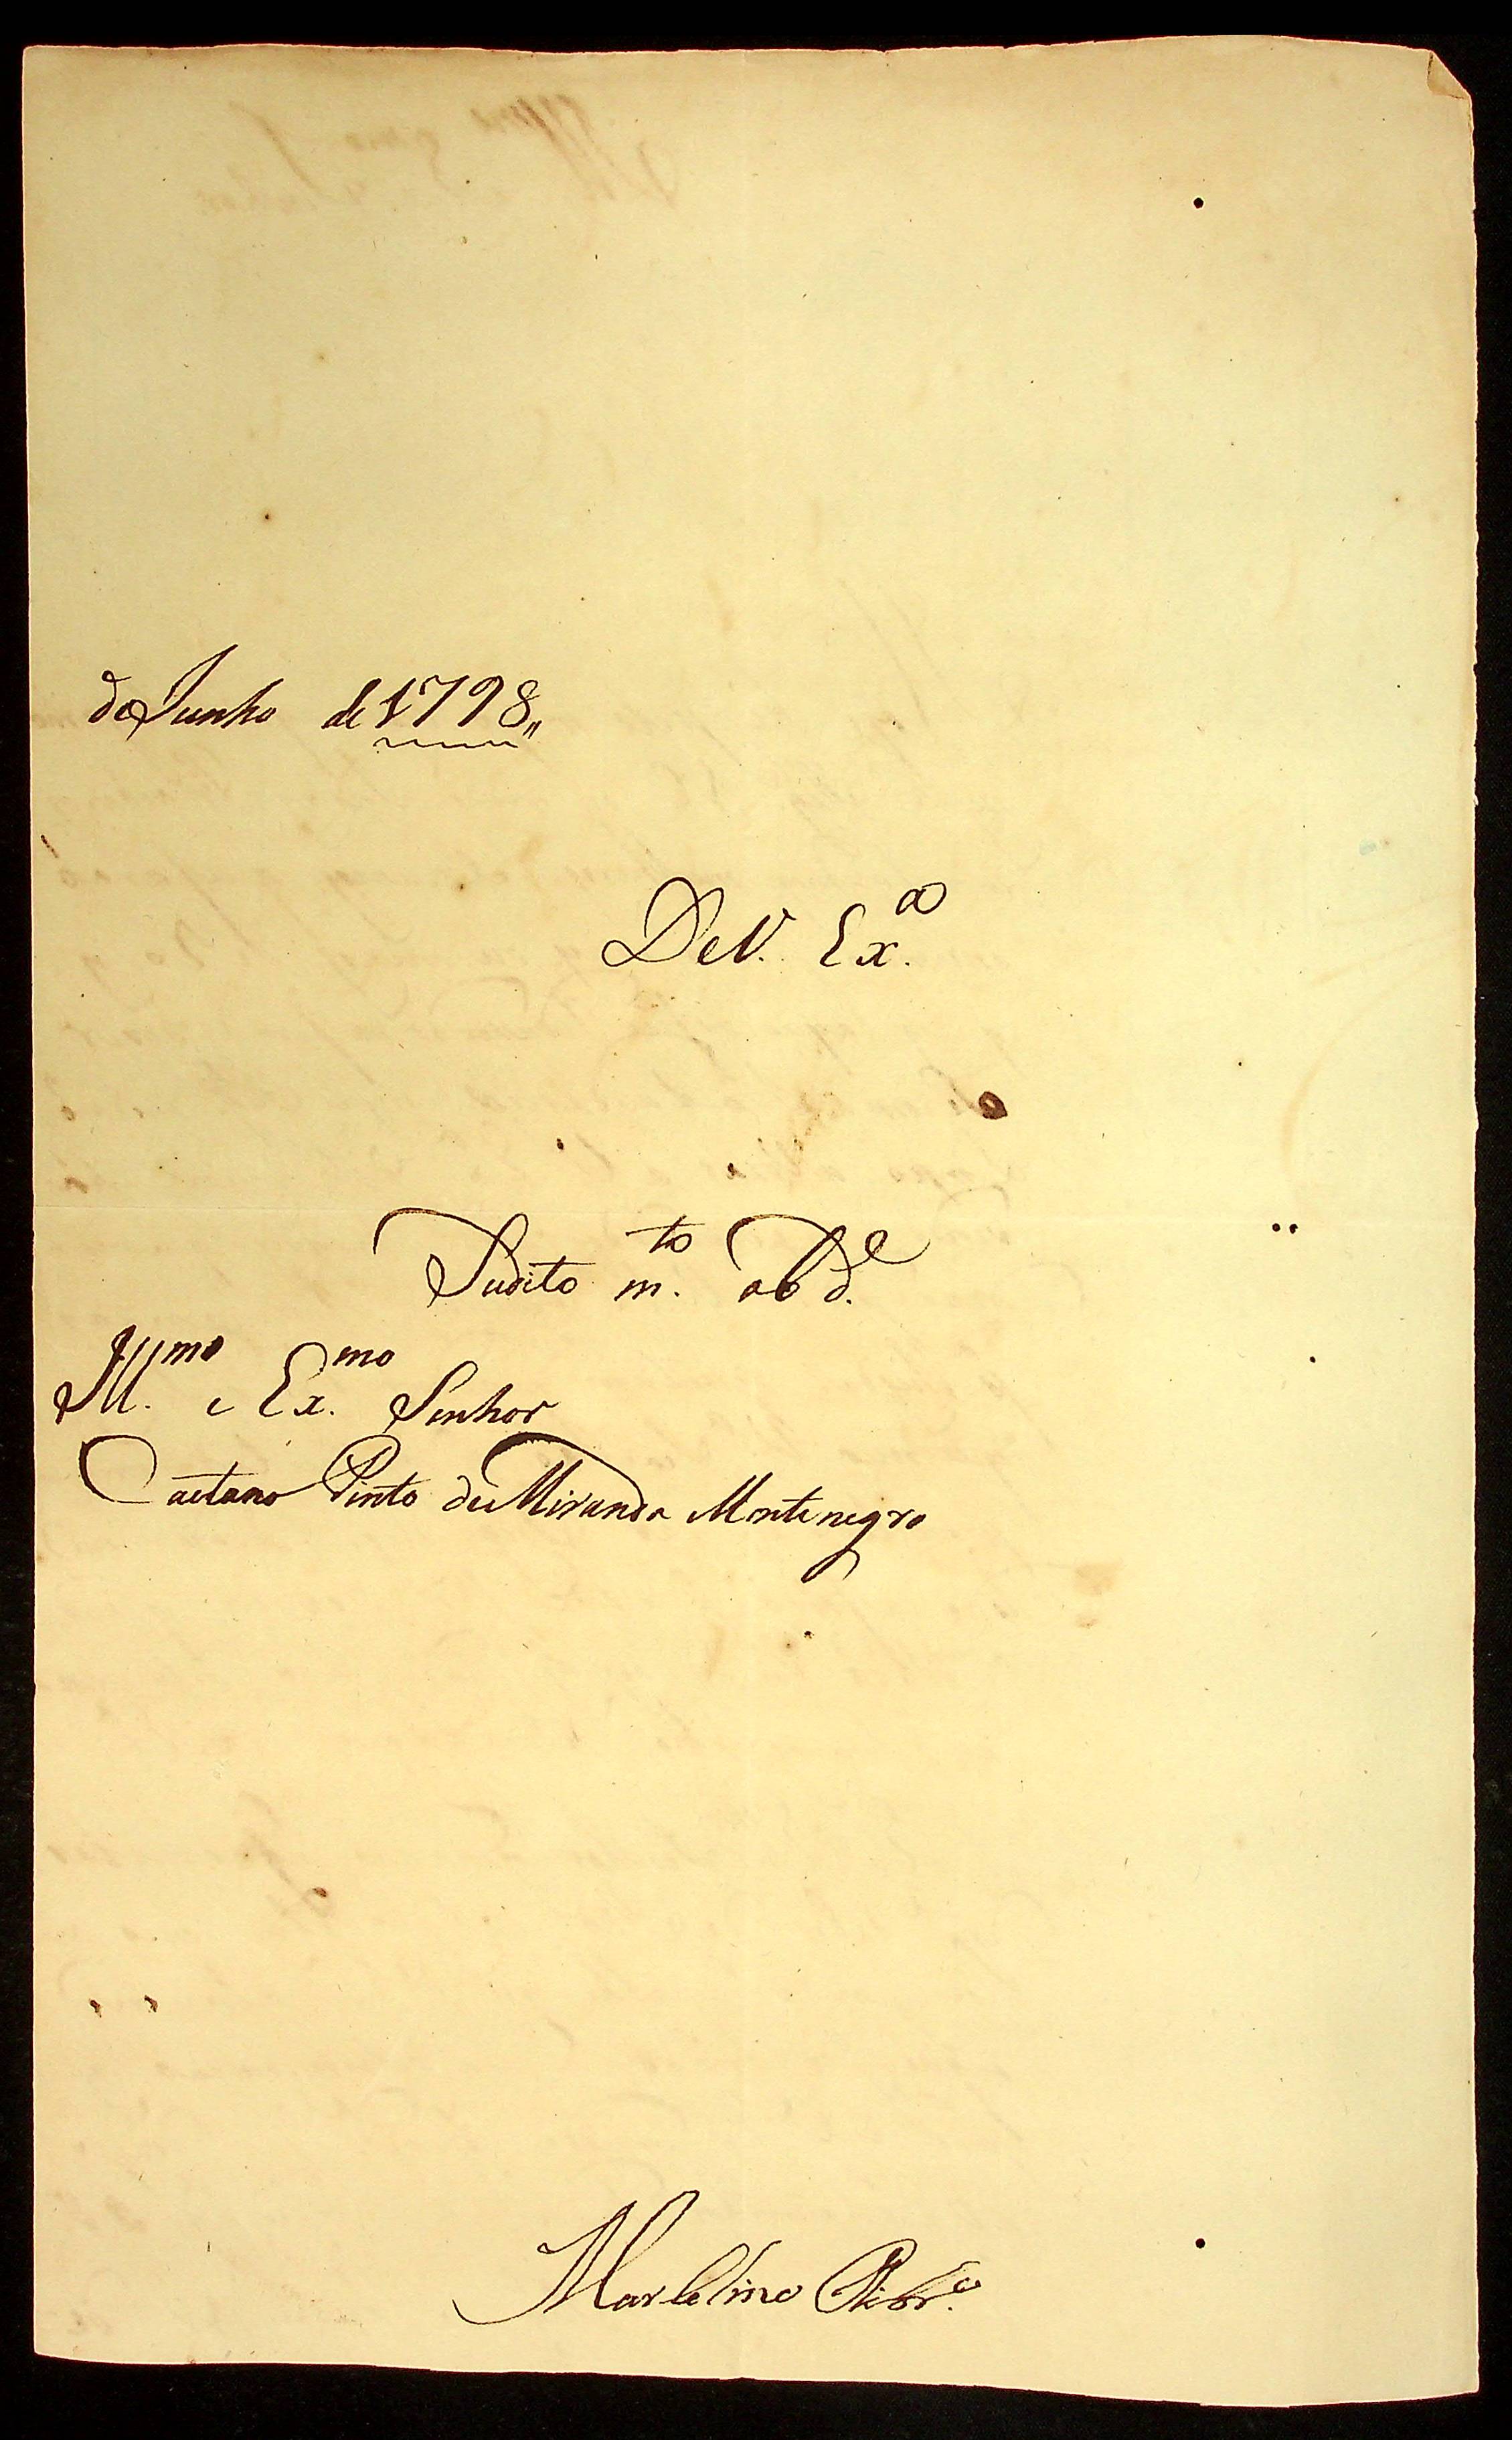 de Junho de 1798,,
De V. Ex.ª
Sudito m.to obd.e
Ill.mo e Ex.mo Senhor
Caetano Pinto de Miranda Montenegro
Marcelino Ribr.o